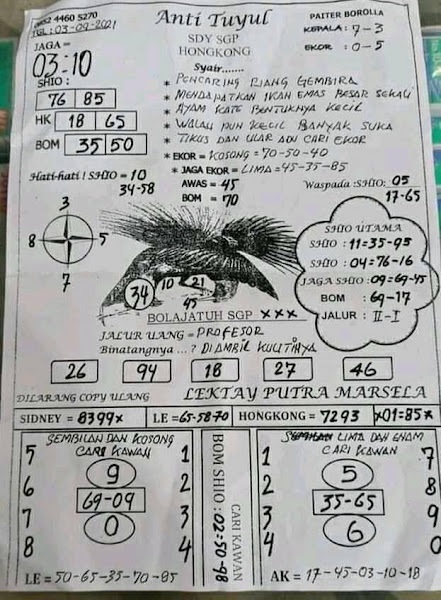 0852 4460 5270
TGL : 03-09-2021
Anti Tuyul
PAITER BOROLLA
KEPALA : 7-3
EKOR : 0-5
SDY SGP
HONGKONG
JAGA =
03:10
SHIO :
76 85
HK 18 65
BOM 35 50
Syair.......
* PENCARING RIANG GEMBIRA
* MENDAPATKAN IKAN EMAS BESAR SEKALI
* AYAM KATE BENTUKNYA KECIL
* WALAU PUN KECIL BANYAK SUKA
* TIKUS DAN ULAR ADU CARI EKOR
* EKOR = KOSONG = 70-50-40
* JAGA EKOR = LIMA = 45-35-85
Hati-hati ! SHIO = 10
34-58
AWAS = 45
BOM = 70
Waspada :SHIO: 05
17-65
3
8 5
7
34 10 21
45
SHIO UTAMA
SHIO : 11=35-95
SHIO : 04=76-16
JAGA SHIO : 09=69-45
BOM : 69-17
JALUR : II-I
BOLAJATUH SGP XXX
JALUR UANG = PROFESOR
Binatangnya ... ? DIAMBIL KULITNYA
26 94 18 27 46
DILARANG COPY ULANG
LEKTAY PUTRA MARSELA
SIDNEY = 8399x
LE =65-58-70
HONGKONG = 7293
x01=85x
SEMBILAN DAN KOSONG
CARI KAWAN
5 9 1
6 69-09 2
7 0 3
8 4
LE = 50-65-35-70-85
BOM SHIO : 02=50-98
CARI KAWAN
LIMA DAN ENAM
CARI KAWAN
1 5 7
2 35-65 8
3 6 9
4 0
AK = 17-45-03-10-18